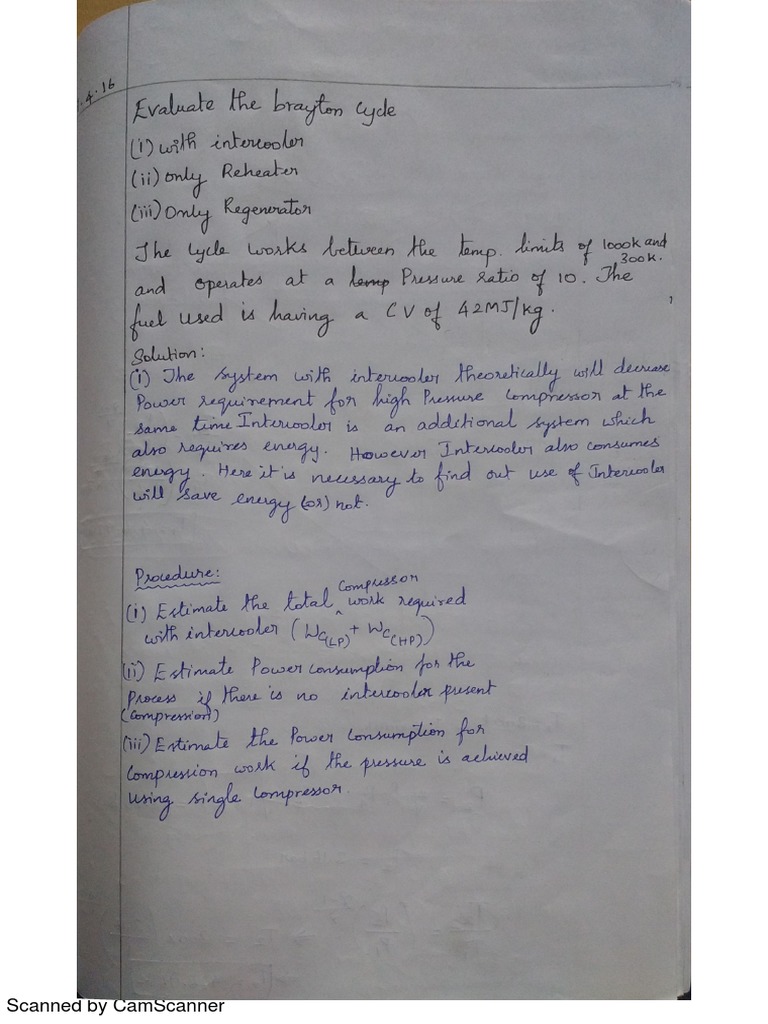 .4.16
Evaluate the brayton cycle
(i) with intercooler
(ii) only Reheater
(iii) Only Regenerator
The cycle works between the temp. limits of 1000k and
300k.
and operates at a temp Pressure ratio of 10. The
fuel used is having a CV of 42MJ/kg.
Solution:
(i) The system with intercooler theoretically will decrease
Power requirement for high Pressure compressor at the
same time Intercooler is an additional system which
also requires energy. However Intercooler also consumes
energy. Here it is necessary to find out use of Intercooler
will save energy (or) not.
Procedure:
(i) Estimate the total compressor work required
with intercooler (WC(LP) + WC(HP))
(ii) Estimate Power consumption for the
Process if there is no intercooler present
(compression)
(iii) Estimate the Power consumption for
compression work if the pressure is achieved
using single compressor.
Scanned by CamScanner